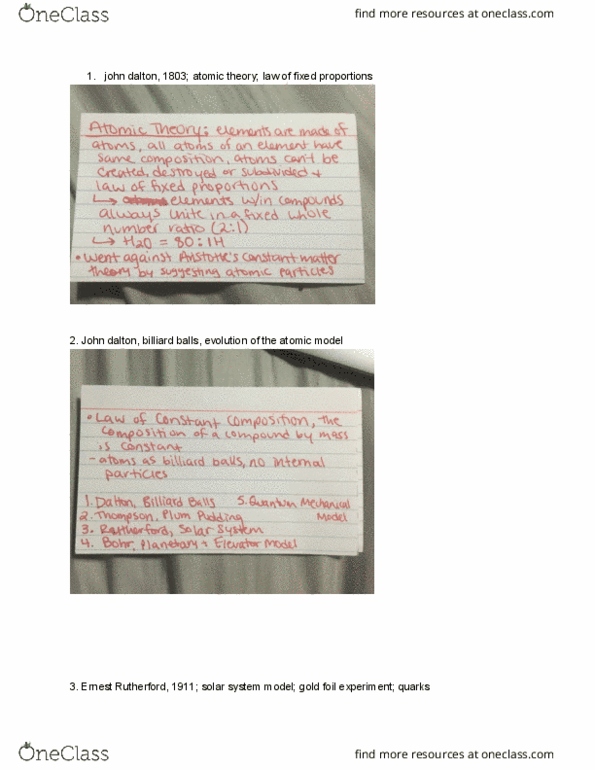 OneClass
find more resources at oneclass.com
1. john dalton, 1803; atomic theory; law of fixed proportions
Atomic Theory: elements are made of
atoms, all atoms of an element have
same composition, atoms can't be
created, destroyed or subdivided +
law of fixed proportions
↳ elements w/in compounds
always unite in a fixed whole
number ratio (2:1)
↳ H2O = 8O:1H
• went against Aristotle's constant matter
theory by suggesting atomic particles
2. John dalton, billiard balls, evolution of the atomic model
• Law of Constant Composition, the
composition of a compound by mass
is constant
- atoms as billiard balls, no internal
particles
1. Dalton, Billiard Balls 5. Quantum Mechanical
2. Thompson, Plum Pudding Model
3. Rutherford, Solar System
4. Bohr, Planetary + Elevator Model
3. Ernest Rutherford, 1911; solar system model; gold foil experiment; quarks
OneClass
find more resources at oneclass.com